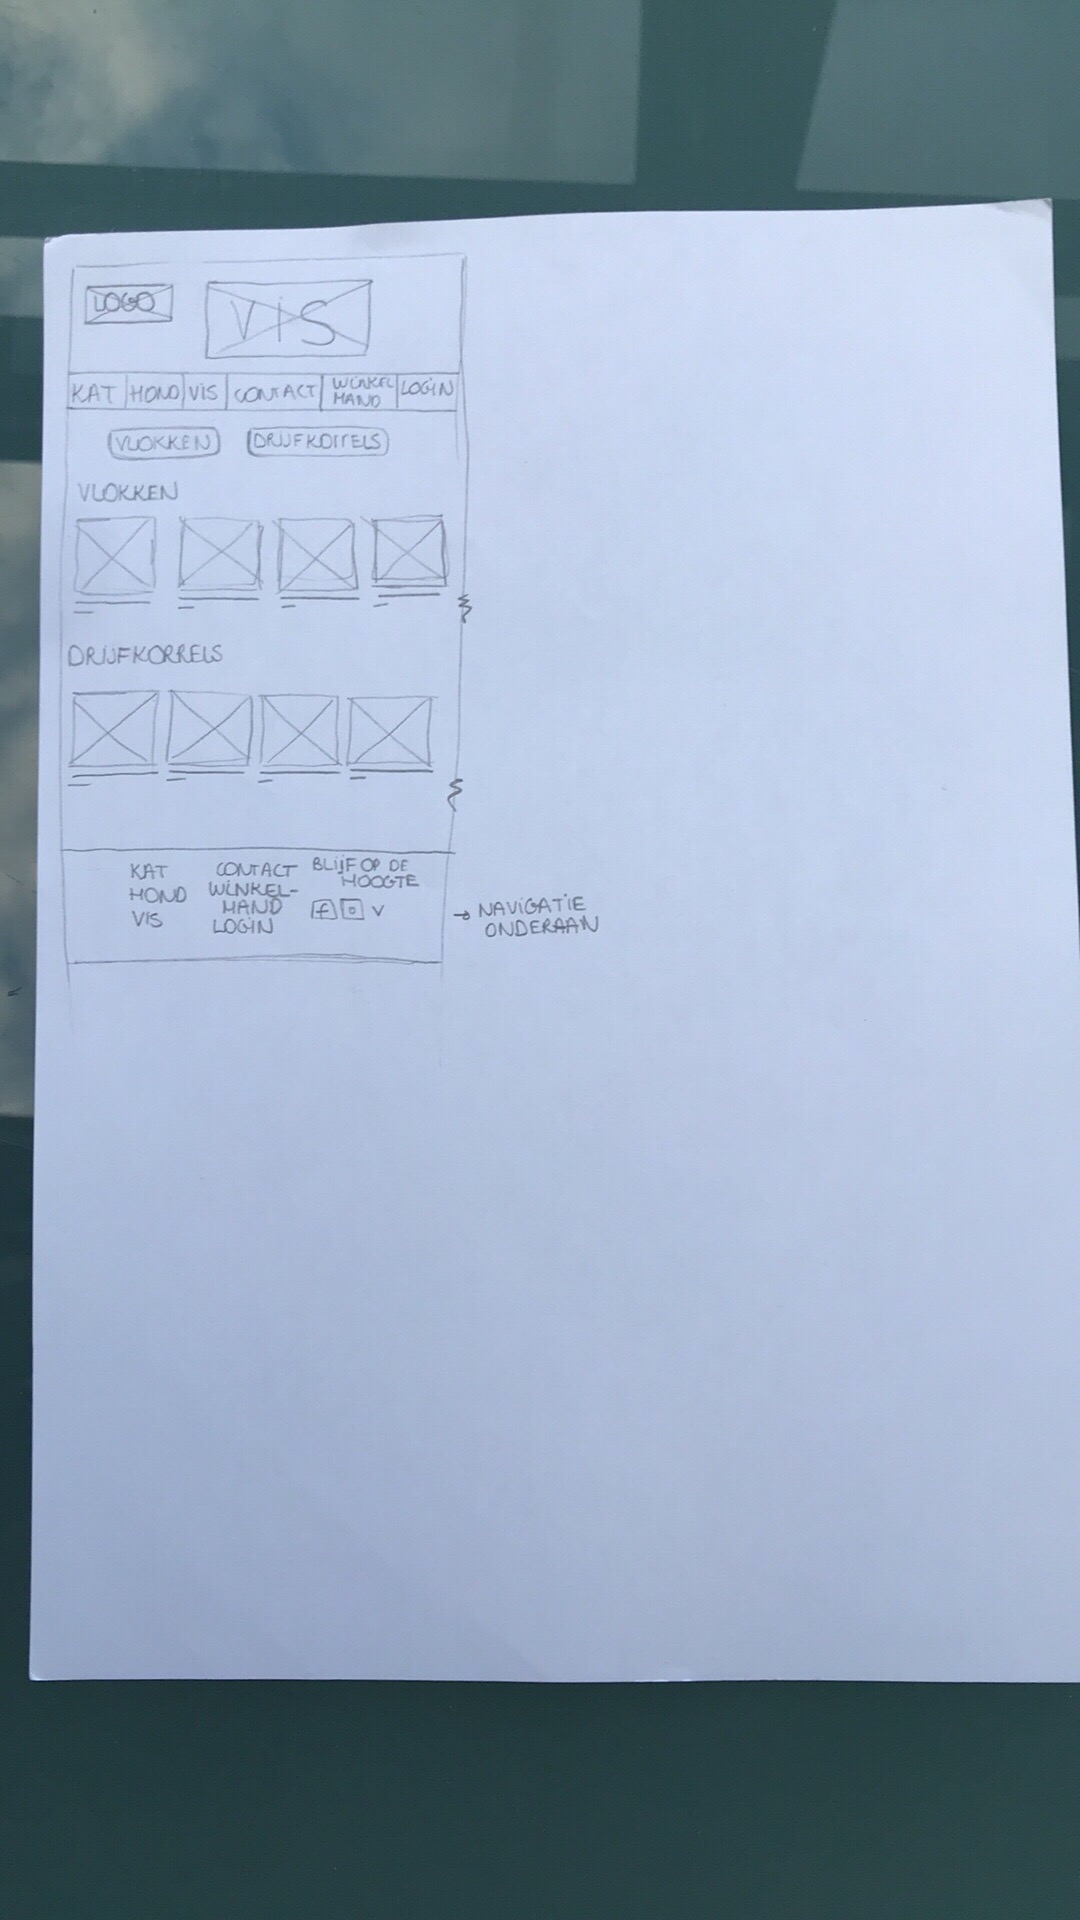 LOGO
VIS
KAT HOND VIS CONTACT WINKEL MAND LOGIN
VLOKKEN DRIJFKORRELS
VLOKKEN
DRIJFKORRELS
KAT
HOND
VIS
CONTACT
WINKEL-
MAND
LOGIN
BLIJF OP DE
HOOGTE
f v
→ NAVIGATIE
ONDERAAN